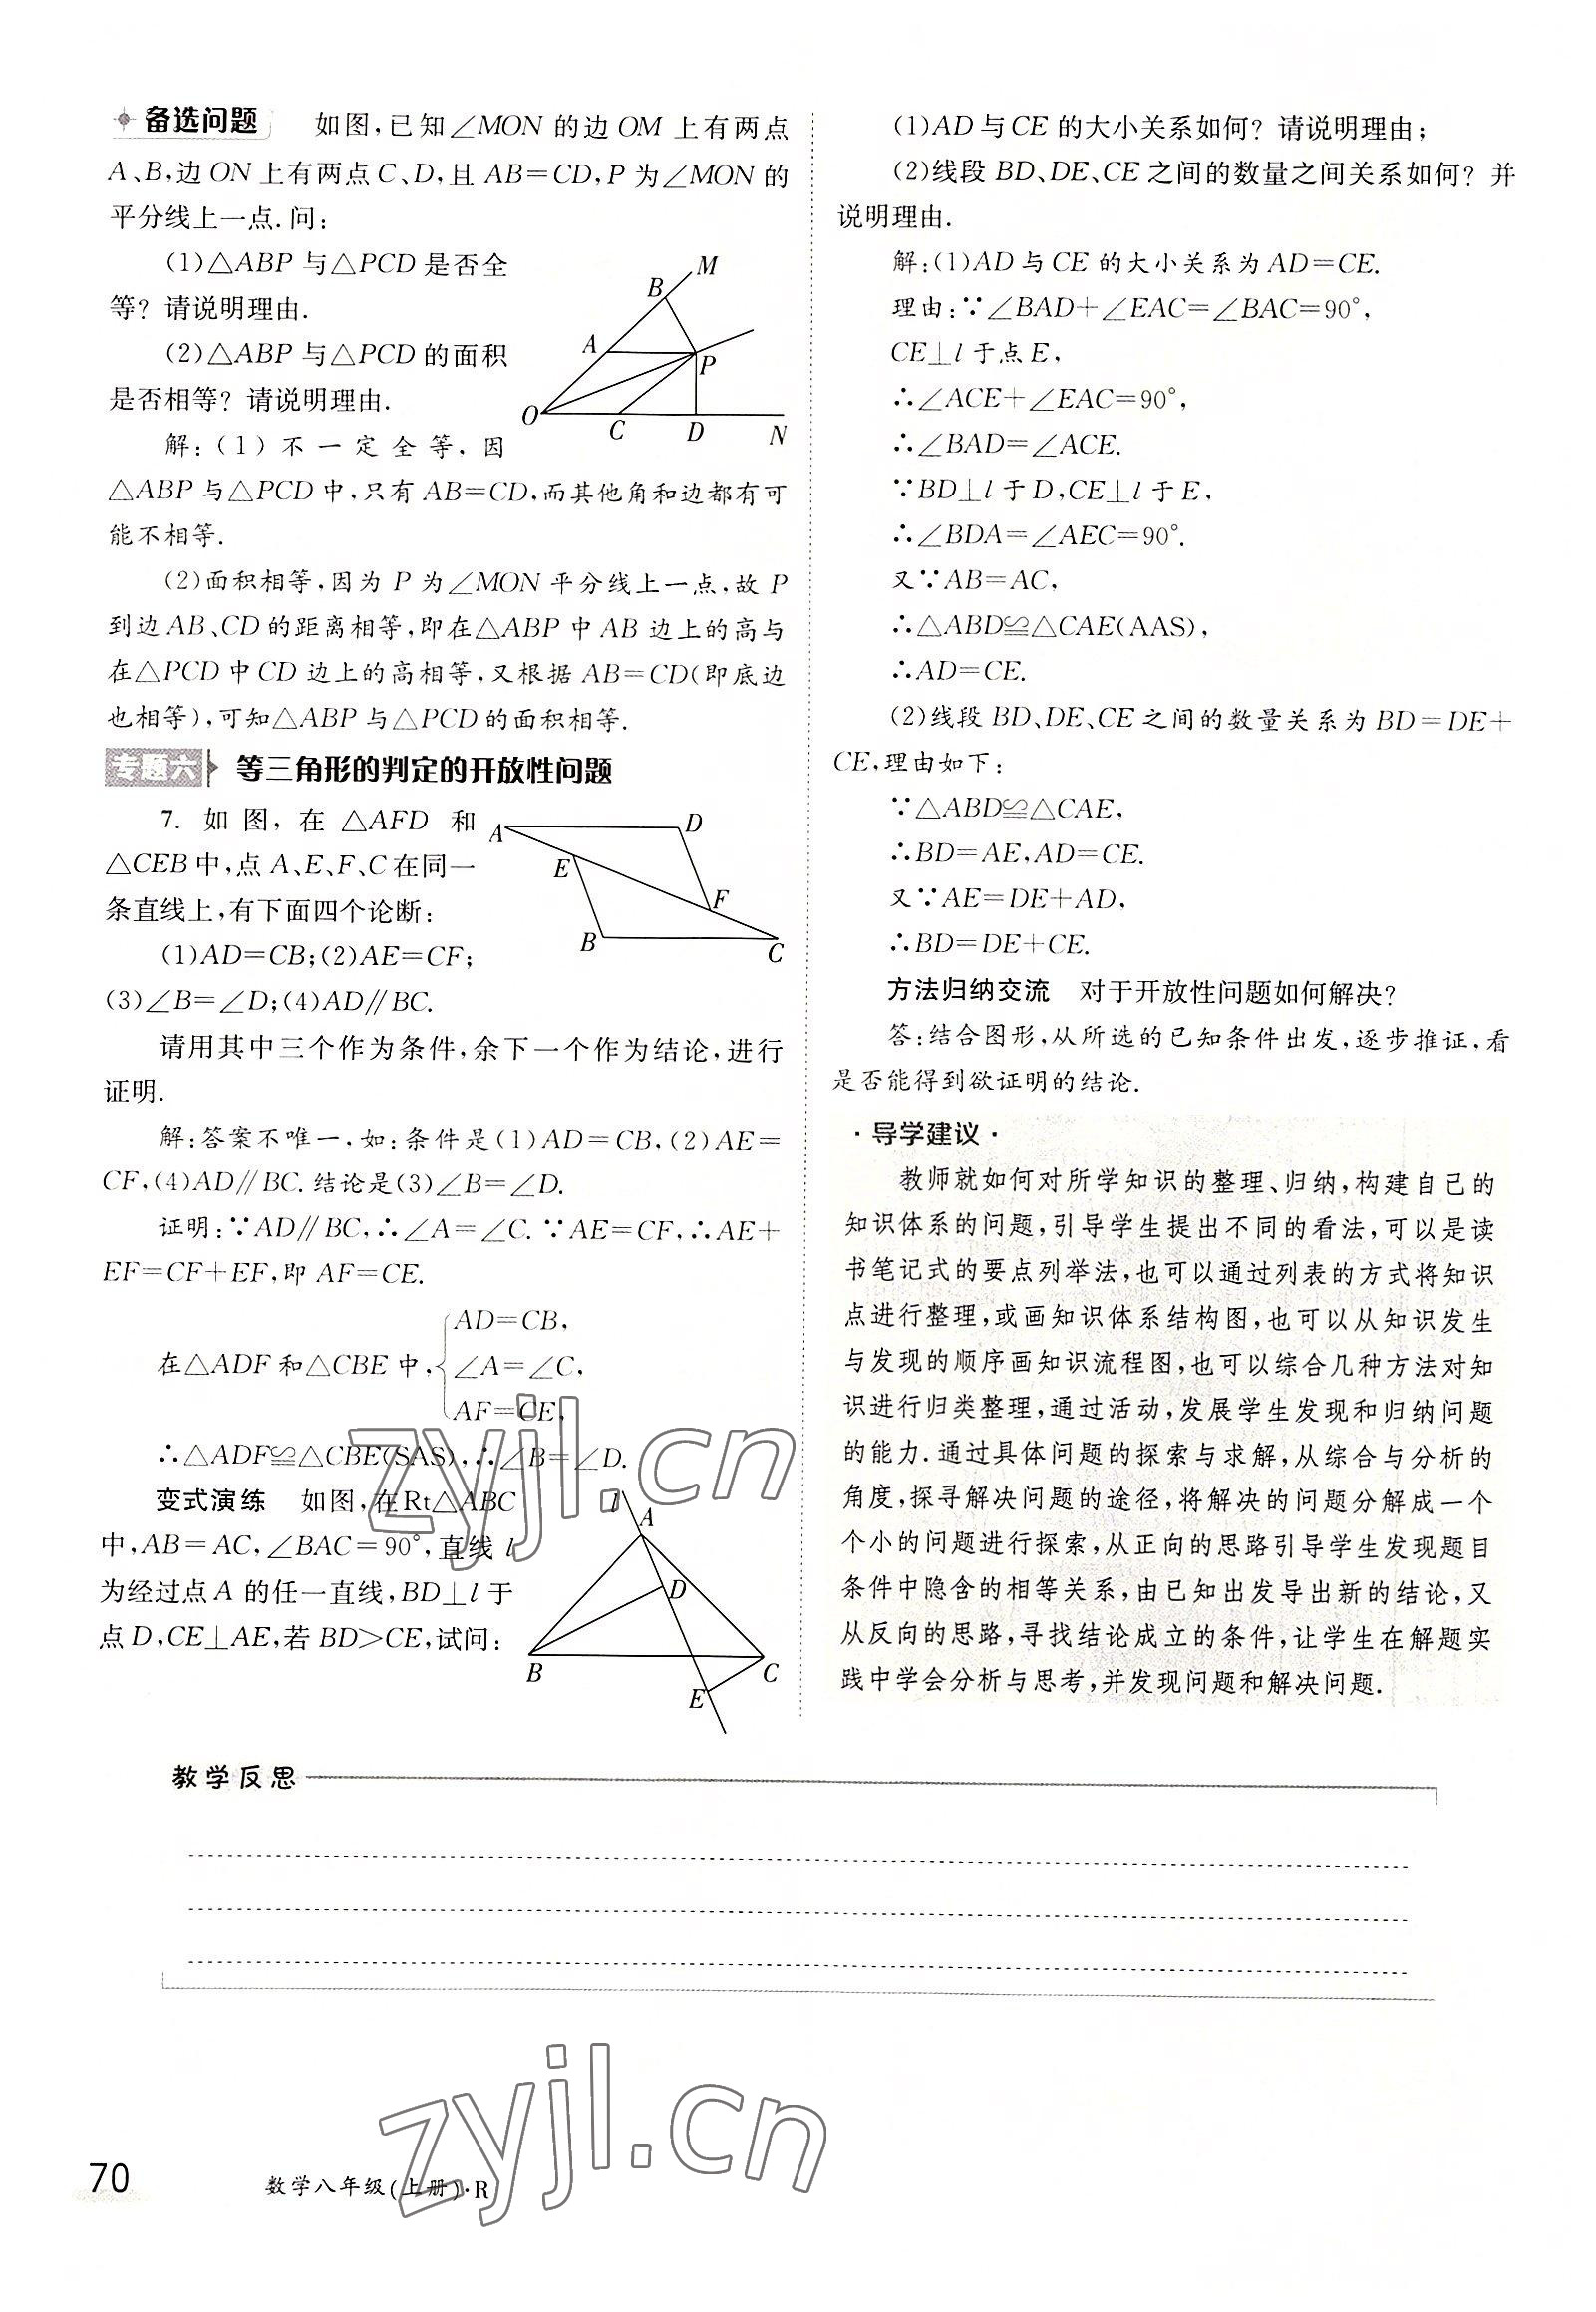 备选问题 如图,已知∠MON的边OM上有两点
A、B,边ON上有两点C、D,且AB=CD,P为∠MON的
平分线上一点.问:
(1)△ABP与△PCD是否全
等?请说明理由.
(2)△ABP与△PCD的面积
是否相等?请说明理由.
M
B
A
P
O
C
D
N
解:(1)不一定全等,因
△ABP与△PCD中,只有AB=CD,而其他角和边都有可
能不相等.
(2)面积相等,因为P为∠MON平分线上一点,故P
到边AB、CD的距离相等,即在△ABP中AB边上的高与
在△PCD中CD边上的高相等,又根据AB=CD(即底边
也相等),可知△ABP与△PCD的面积相等.
专题六 等三角形的判定的开放性问题
7. 如图,在△AFD和
△CEB中,点A、E、F、C在同一
条直线上,有下面四个论断:
(1)AD=CB;(2)AE=CF;
(3)∠B=∠D;(4)AD∥BC.
A
D
E
F
B
C
请用其中三个作为条件,余下一个作为结论,进行
证明.
解:答案不唯一,如:条件是(1)AD=CB,(2)AE=
CF,(4)AD∥BC.结论是(3)∠B=∠D.
证明:∵AD∥BC,∴∠A=∠C.∵AE=CF,∴AE+
EF=CF+EF,即AF=CE.
AD=CB,
在△ADF和△CBE中,{∠A=∠C,
AF=CE,
∴△ADF≌△CBE(SAS),∴∠B=∠D.
变式演练 如图,在Rt△ABC
中,AB=AC,∠BAC=90°,直线l
为经过点A的任一直线,BD⊥l于
点D,CE⊥AE,若BD>CE,试问:
l
A
D
B
C
E
(1)AD与CE的大小关系如何?请说明理由;
(2)线段BD、DE、CE之间的数量之间关系如何?并
说明理由.
解:(1)AD与CE的大小关系为AD=CE.
理由:∵∠BAD+∠EAC=∠BAC=90°,
CE⊥l于点E,
∴∠ACE+∠EAC=90°,
∴∠BAD=∠ACE.
∵BD⊥l于D,CE⊥l于E,
∴∠BDA=∠AEC=90°.
又∵AB=AC,
∴△ABD≌△CAE(AAS),
∴AD=CE.
(2)线段BD、DE、CE之间的数量关系为BD=DE+
CE,理由如下:
∵△ABD≌△CAE,
∴BD=AE,AD=CE.
又∵AE=DE+AD,
∴BD=DE+CE.
方法归纳交流 对于开放性问题如何解决?
答:结合图形,从所选的已知条件出发,逐步推证,看
是否能得到欲证明的结论.
·导学建议·
教师就如何对所学知识的整理、归纳,构建自己的
知识体系的问题,引导学生提出不同的看法,可以是读
书笔记式的要点列举法,也可以通过列表的方式将知识
点进行整理,或画知识体系结构图,也可以从知识发生
与发现的顺序画知识流程图,也可以综合几种方法对知
识进行归类整理,通过活动,发展学生发现和归纳问题
的能力.通过具体问题的探索与求解,从综合与分析的
角度,探寻解决问题的途径,将解决的问题分解成一个
个小的问题进行探索,从正向的思路引导学生发现题目
条件中隐含的相等关系,由已知出发导出新的结论,又
从反向的思路,寻找结论成立的条件,让学生在解题实
践中学会分析与思考,并发现问题和解决问题.
教学反思
zyjl.cn
zyjl.cn
70
数学八年级(上册)·R